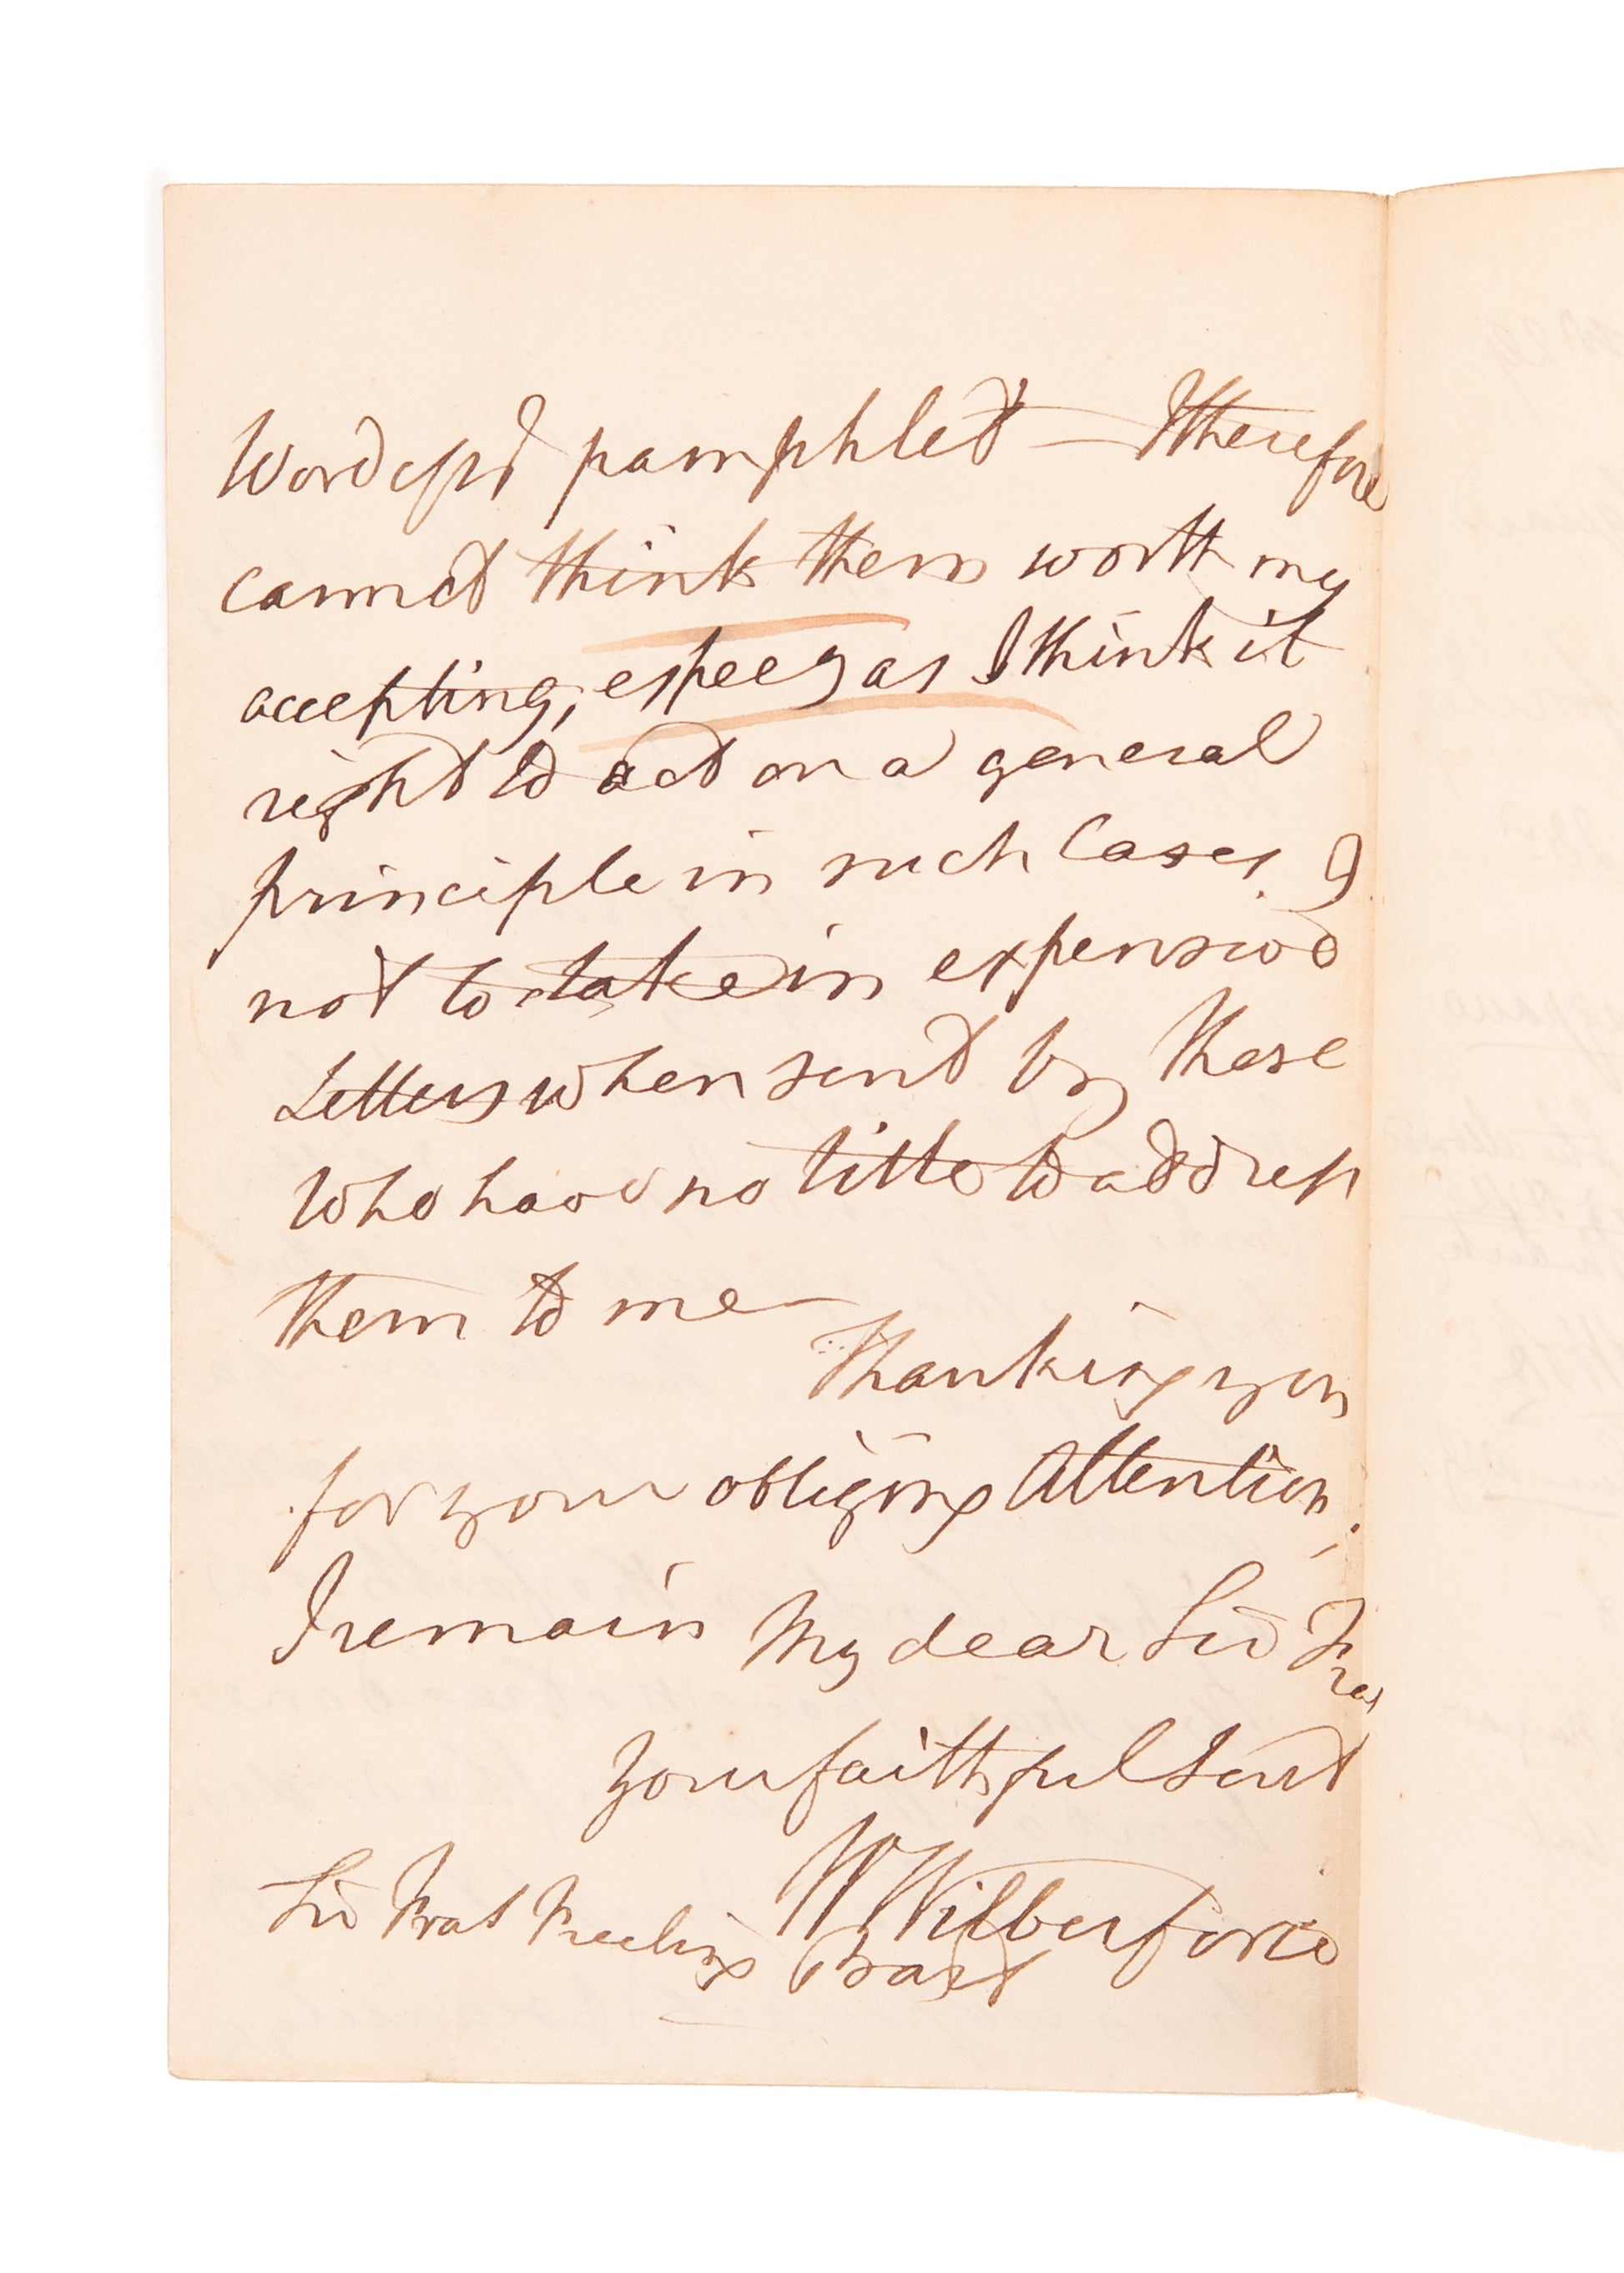 pamphlet — I therefore
cannot think them worth my
accepting, especy as I think it
right to act on a general
principle in such Cases. &
not to take in expensive
Letters when sent by those
who have no title to address
them to me —
Thanking you
for your obliging Attention,
I remain My dear Sir Fras
Your faithful Servt
W Wilberforce
Sir Fras Freeling Bart